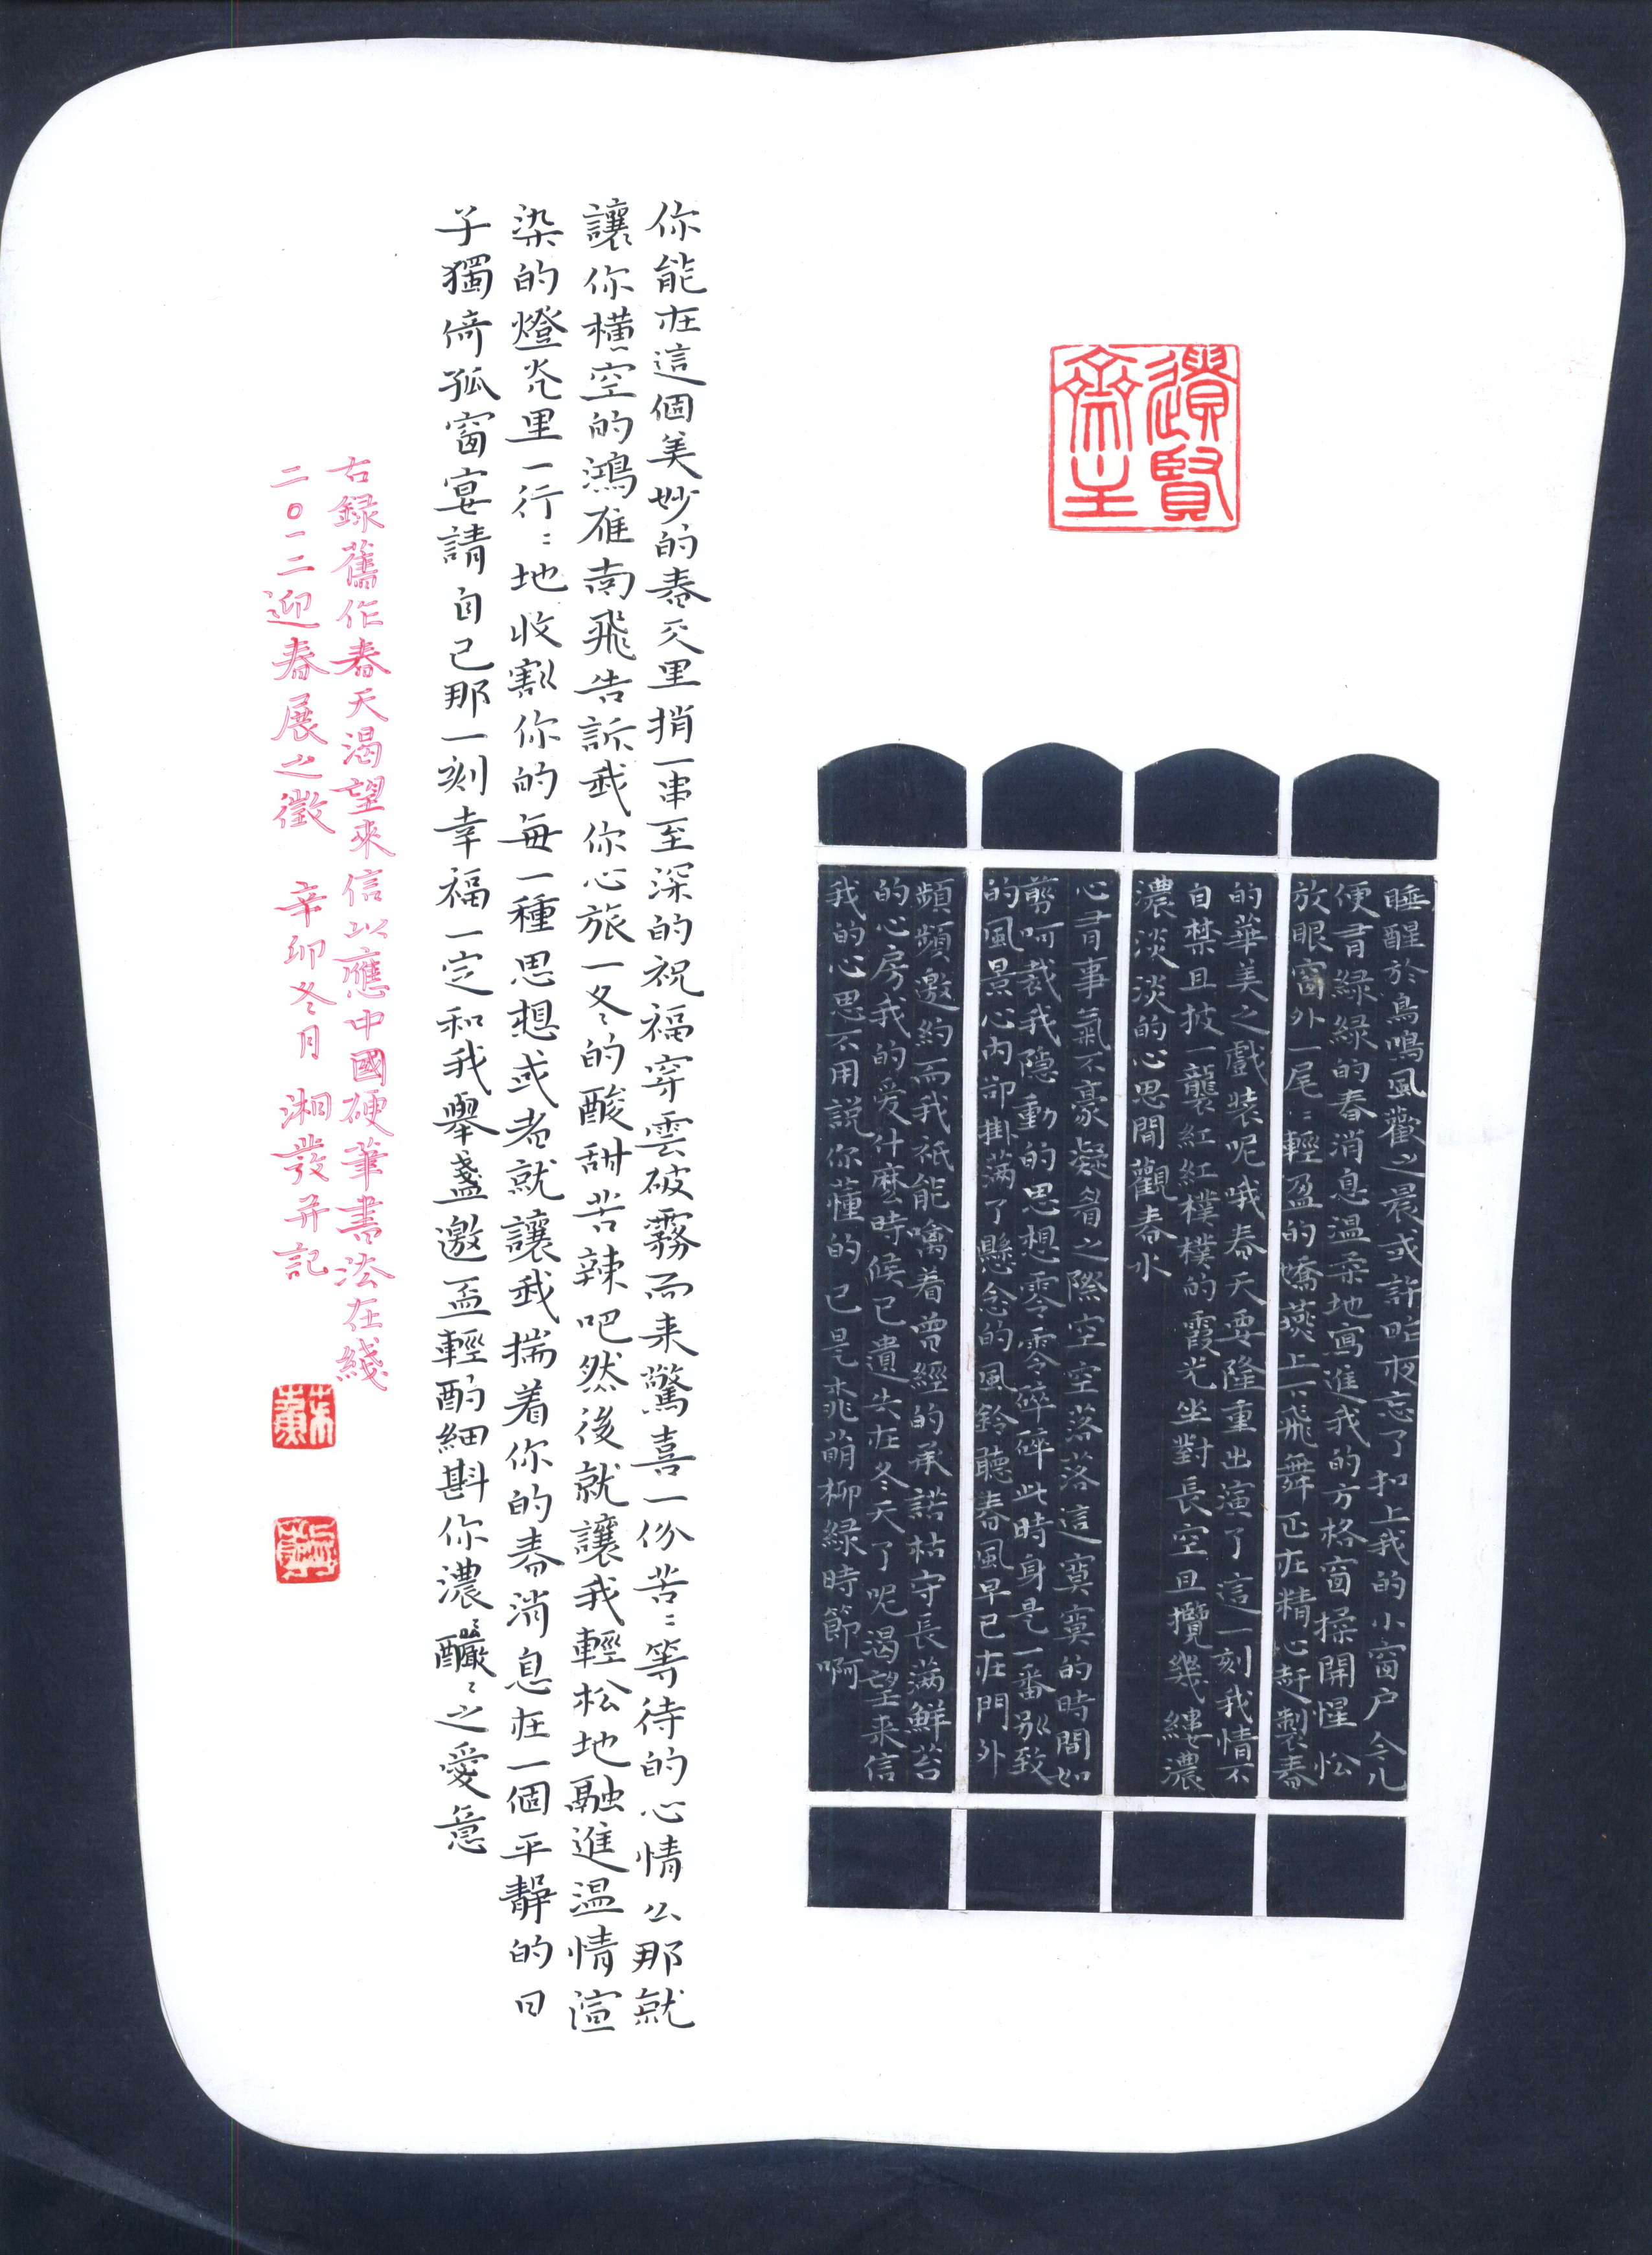 遺賢
齋主
睡醒於鳥鳴風歡之晨或許昨夜忘了扣上我的小窗户令几
便有綠綠的春消息温柔地寫進我的方格窗揉開惺忪
放眼窗外一尾〻輕盈的嬌燕上下飛舞正在精心趕製春
的華美之戲裝呢哦春天要隆重出演了這一刻我情不
自禁且披一襲紅紅樸樸的霞光坐對長空且攬幾縷濃
濃淡淡的心思閒觀春水
心有事氣不豪凝眉之際空空落落這寞寞的時間如
剪呵裁我隱動的思想零零碎碎此時身是一番别致
的風景心内卻掛满了懸念的風鈴聽春風早已在門外
頻頻邀約而我衹能噙着曾經的承諾枯守長满鮮苔
的心房我的爱什麽時候已遺失在冬天了呢渴望来信
我的心思不用説你懂的已是桃萌柳緑時節啊
你能在這個美妙的春天里捎一串至深的祝福穿雲破霧而来驚喜一份苦〻等待的心情么那就
讓你橫空的鴻雁南飛告訴我你心旅一冬的酸甜苦辣吧然後就讓我輕松地融進温情渲
染的燈光里一行〻地收割你的每一種思想或者就讓我揣着你的春消息在一個平靜的日
子獨倚孤窗宴請自己那一刻幸福一定和我舉盞邀盃輕酌細斟你濃〻釅〻之愛意
右録舊作春天渴望來信以應中國硬筆書法在綫
二〇一二迎春展之徵 辛卯冬月 湘發并記